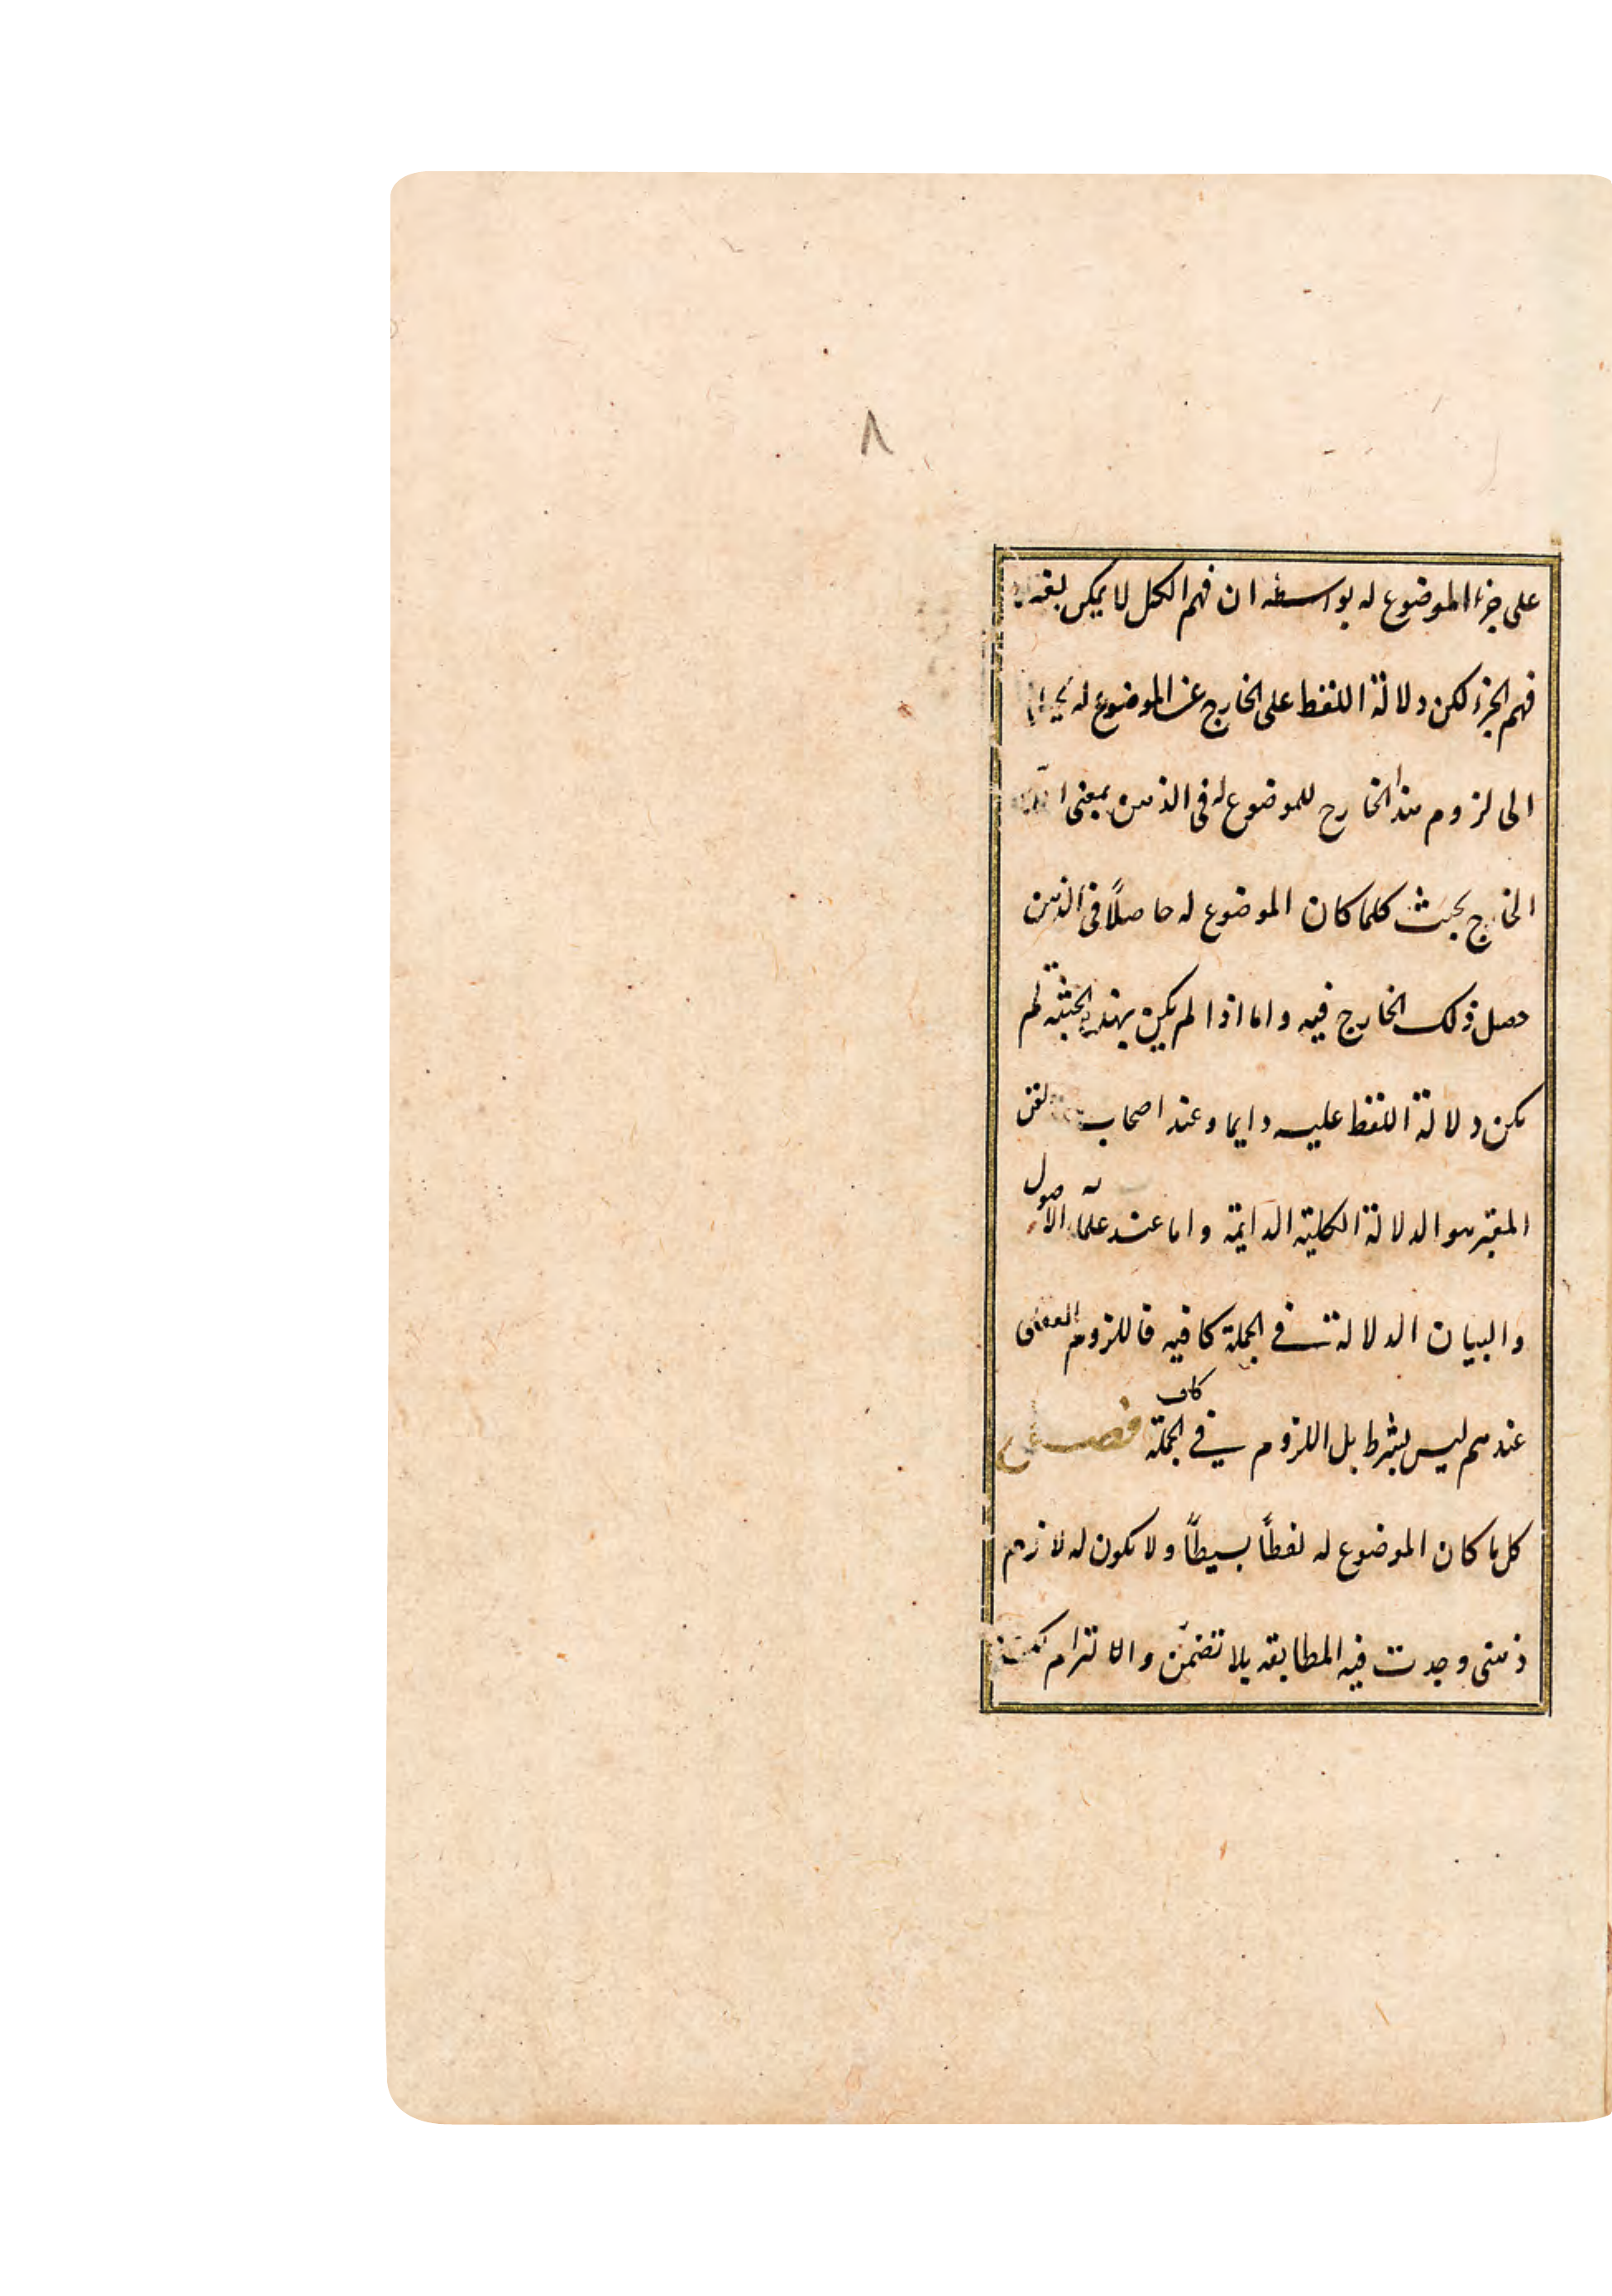 ٨
على جزء الموضوع له بواسطه ان فهم الكل لا يمكن بغير
فهم الجزء لكن دلالة اللفظ على الخارج عن الموضوع له يحتاج
الى لزوم هذا الخارج للموضوع له فى الذهن بمعنى ان
الخارج بحيث كلما كان الموضوع له حاصلًا فى الذهن
حصل ذلك الخارج فيه واما اذا لم يكن بهذه الحيثية لم
يكن دلالة اللفظ عليه دايما وعند اصحاب الفن
المعتبر هو الدلالة الكلية الدايمة واما عند علماء الاصول
والبيان الدلالة في الجملة كافيه فاللزوم
عندهم ليس بشرط بل اللزوم في الجملة كاف فصل
كل ما كان الموضوع له لفظًا بسيطًا ولا يكون له لازم
ذهنى وجدت فيه المطابقه بلا تضمّن والالتزام